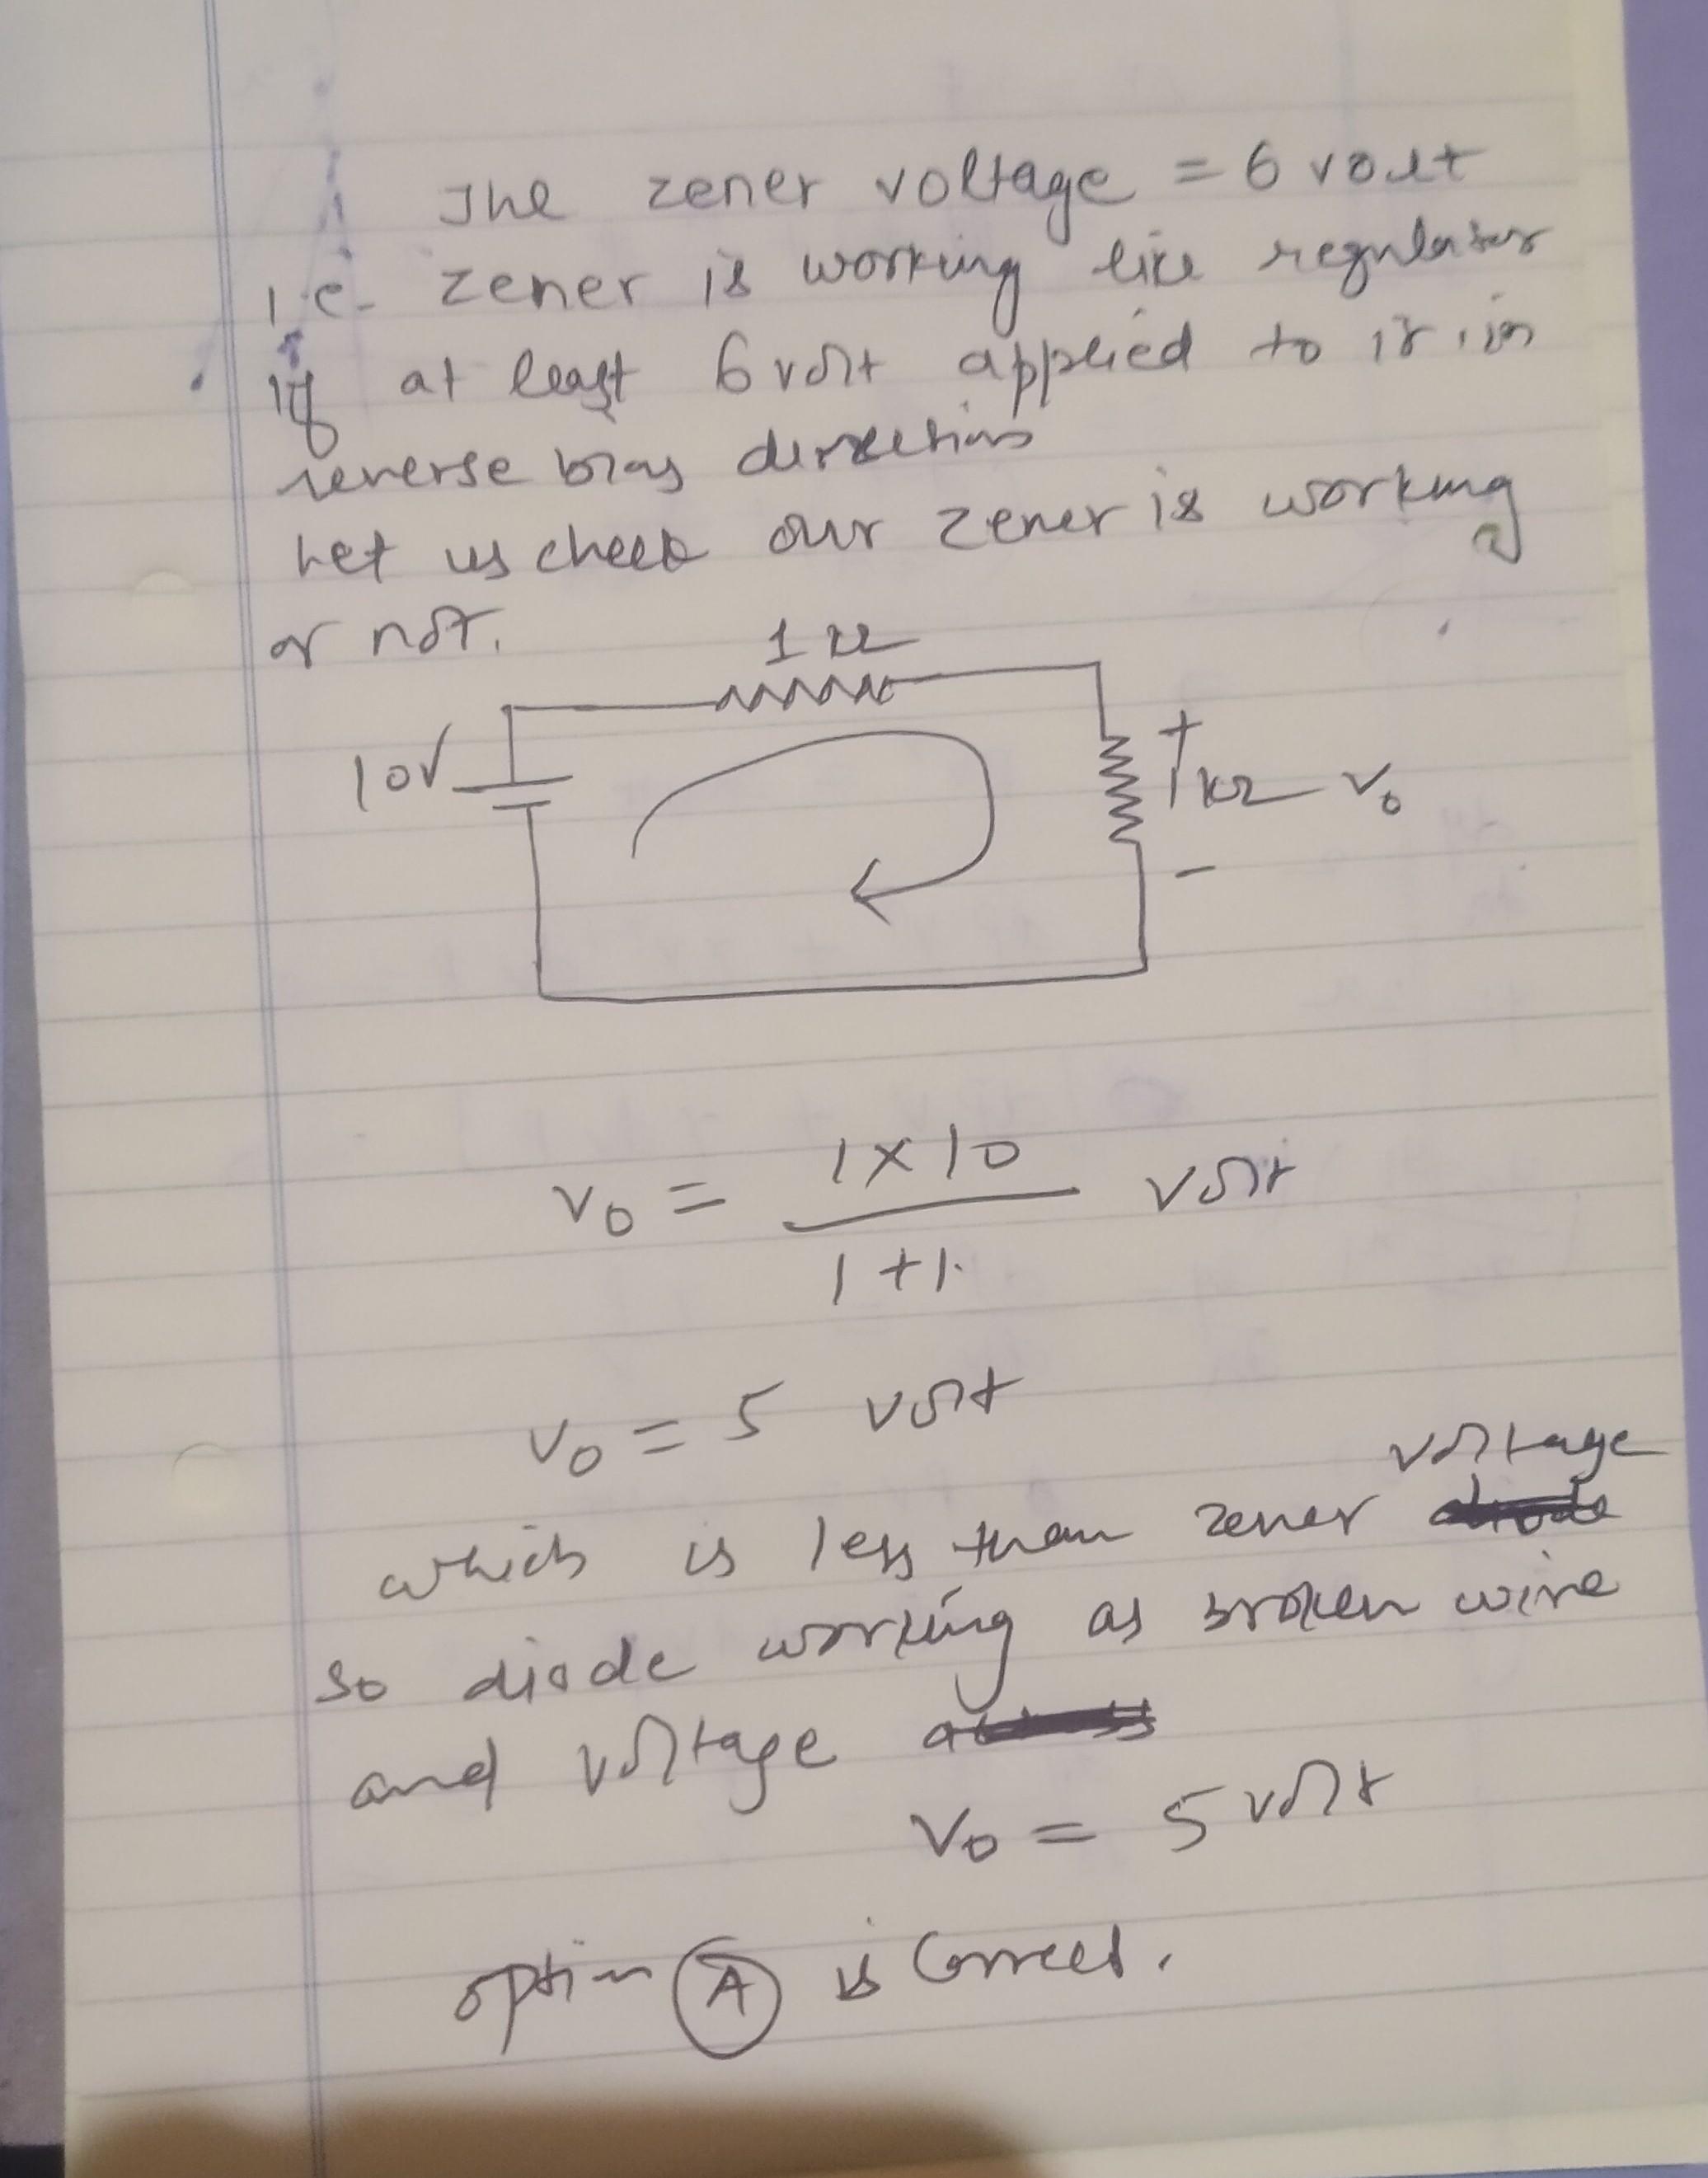 The zener voltage = 6 volt
i.e. zener is working like regulator
if at least 6 volt applied to it in
reverse bias direction
Let us check our zener is working
or not.
1 kΩ
10V
+
1 kΩ V₀
-
V₀ = 1×10 / 1+1 volt
V₀ = 5 volt
voltage
which is less than zener
so diode working as broken wire
and voltage
V₀ = 5 volt
option A is correct.